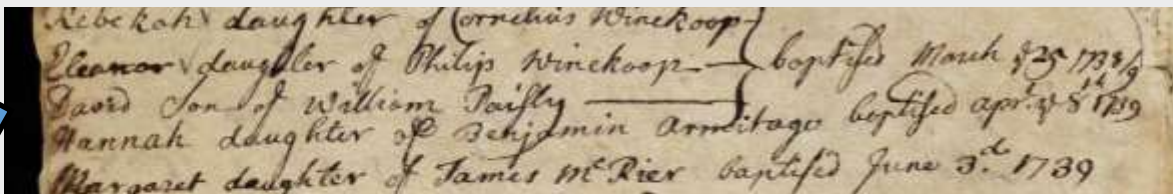 Rebekah daughter of Cornelius Winekoop
Eleanor daughter of Philip Winekoop — baptised March ye 25 1738/9
David Son of William Paisly —
Hannah daughter of Benjamin Armitage baptised apr. ye 8th 1739
Margaret daughter of James McRier baptised June 3.d 1739